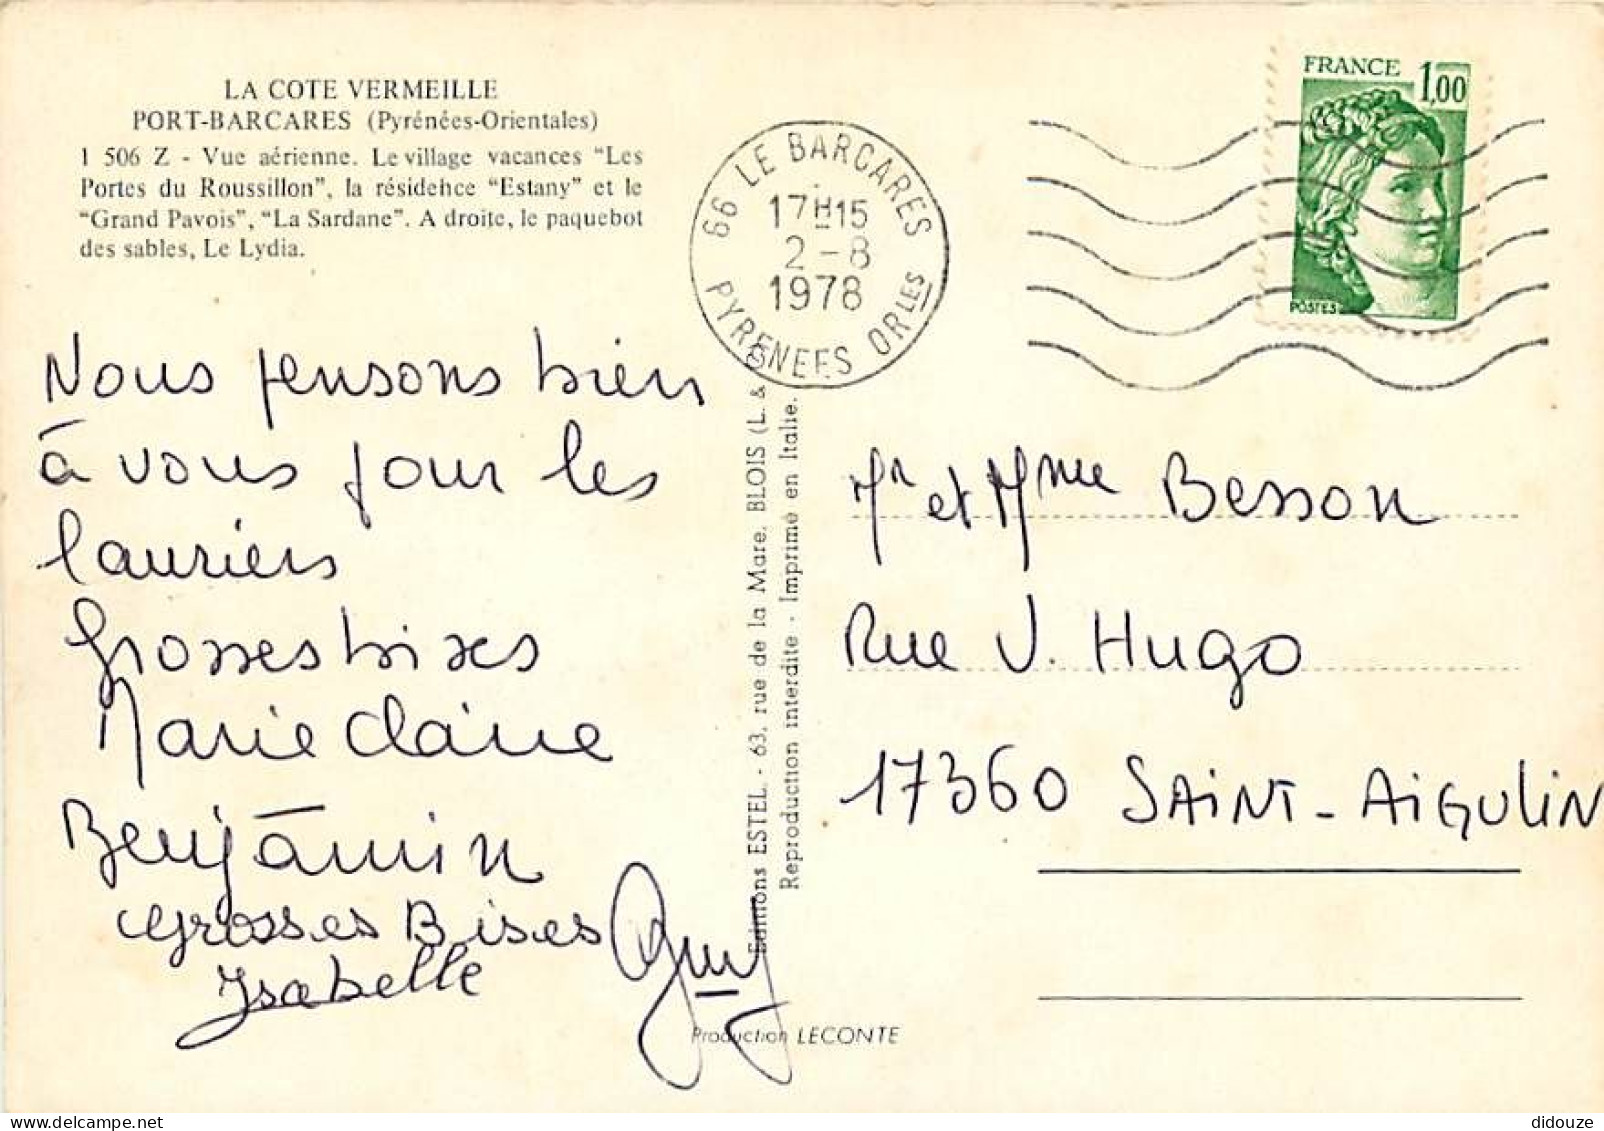 LA COTE VERMEILLE
PORT-BARCARES (Pyrénées-Orientales)
1 506 Z - Vue aérienne. Le village vacances "Les
Portes du Roussillon", la résidence "Estany" et le
"Grand Pavois", "La Sardane". A droite, le paquebot
des sables, Le Lydia.
Nous pensons bien
à vous pour les
lauriers
Grosses bises
Marie Claire
Benjamin
Grosses Bises
Isabelle
Guy
Editions ESTEL. - 63, rue de la Mare. BLOIS (L. &
Reproduction interdite - Imprimé en Italie.
Production LECONTE
66 LE BARCARES
17H15
2-8
1978
PYRENEES ORLES
FRANCE 1,00
POSTES
Mr et Mme Besson
Rue V. Hugo
17360 SAINT-AIGULIN
delcampe.net
didouze